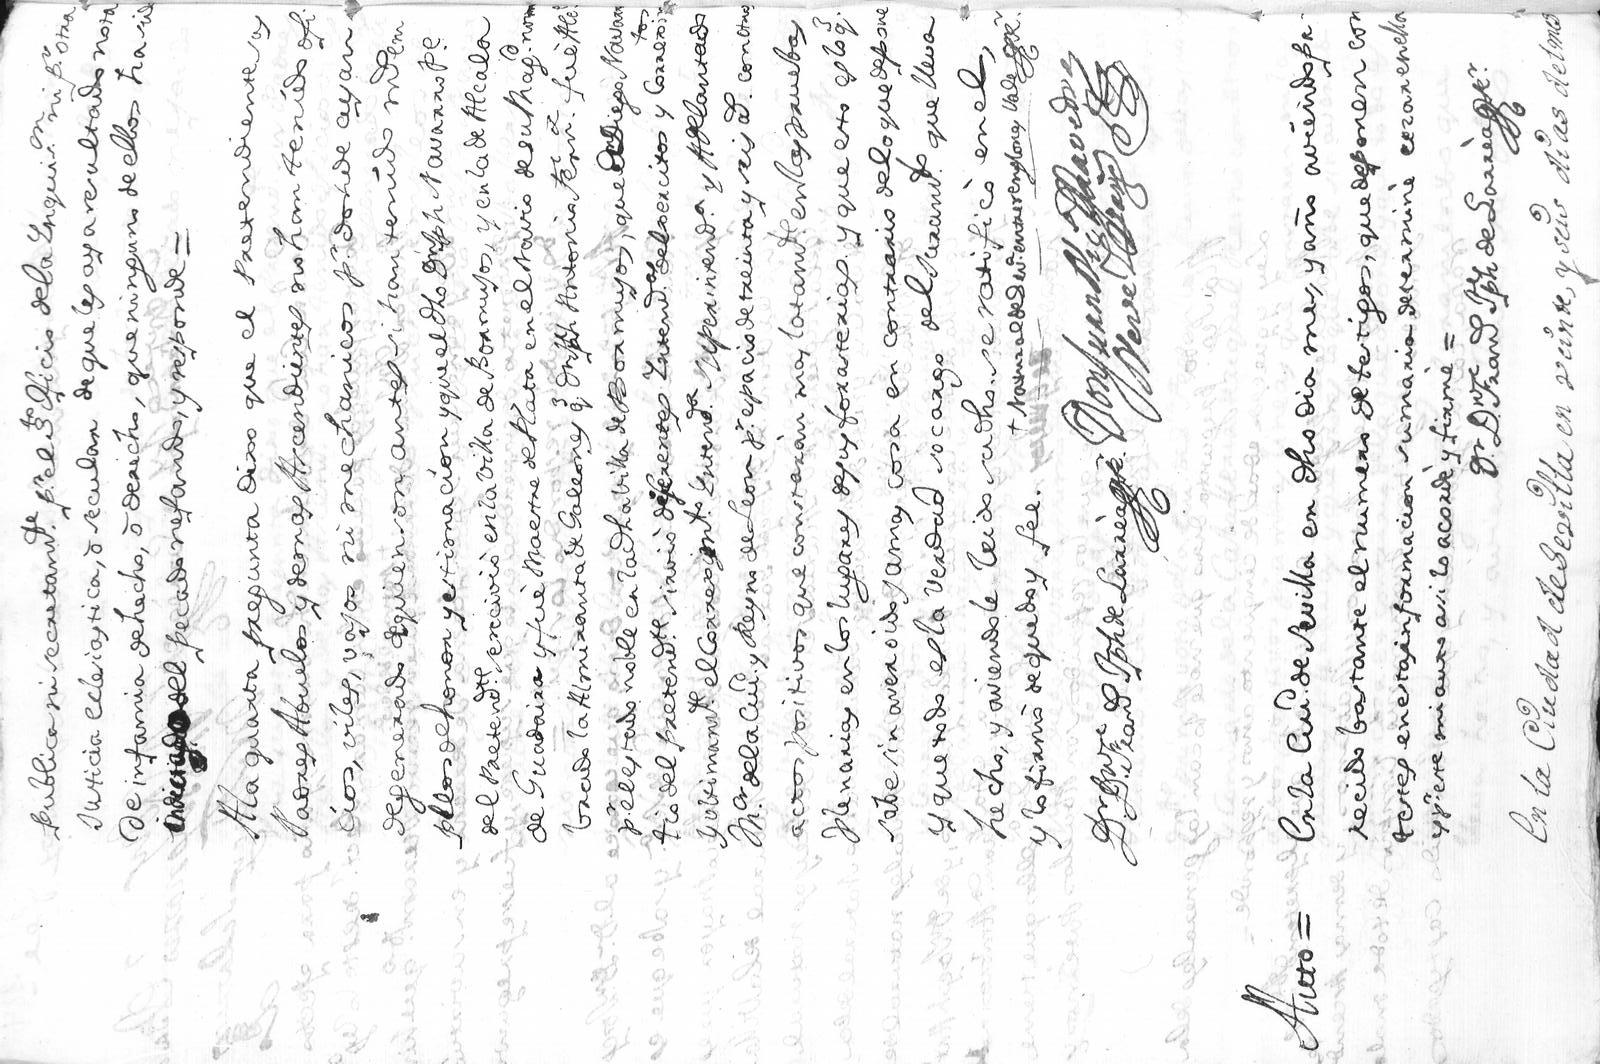 publica ni secretamte. pr. el Sto. Oficio de la Inquisn. ni pr. otra
Justicia eclesiastica, ô secular de que les aya resultado nota
de infamia de hecho, ô derecho, que ninguno de ellos ha sid
indiciado del pecado nefando, y responde =
A la quarta pregunta dixo que el Pretendiente, y
Padres, Abuelos y demas Ascendientes no han tenido ofi-
cios, viles, vajos ni mechanicos pr. donde ayan
degenerado de quien son, antes si han tenido
pleos de honor y estimacion y que el dho Dn. Jph. Navarro Pe.
del Pretendte. exercivio en la villa de Bormujos, y en la de Alcala
de Guadaira y fue Maestre de Plata en el Navio de su Magd. nom
brado la Almiranta de Galeones q. Dn. Jph. Antonio fue Alcde.
pr. el estado noble en la dha villa de Bormujos, que Dn. Diego Navarro
tio del pretendte. sirviô diferentes Intendas. de los exercitos y Correximtos.
y ultimamte. el Corregimto. Intenda. Superintenda. y Adelantado
Mor. de la Ciud. y Reyno de Leon pr. espacio de treinta y seis as. con otros
actos positivos que constaràn mas latamte. en las pruebas
plenarias en los lugares de sus foraterias. y que esto es lo q.
sabe sin aver oido, y amas cosa en contrario de lo que depone
y que todo es la verdad so cargo del Juramto. que lleva
hecho, y aviendole leido su dho. se ratificò en el,
y lo firmò de que doy fee. + Navarro
Dr. Dn. Franco. Jph. de Larrea Don Juan
Auto = En la Ciud. de Sevilla en dho dia mes, y año aviendo pa-
recido bastante el numero de testigos, que deponen con
testes en esta informacion sumaria determinè cerrar en ella
y pr. este mi auto asi lo acordè y firmè =
Dr. Dn. Franco. Jph. de Larrea
En la Ciudad de Sevilla en veinte, y seis dias del mes